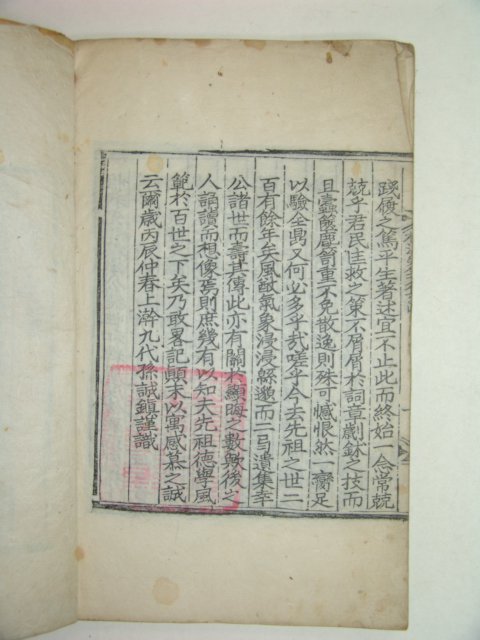 踐履之篤平生著述宜不止此而終始一念常兢
兢乎君民匡救之策不屑屑於詞章劌鉥之技而
且蠹餘塵箱重不免散逸則殊可憾恨然一臠足
以驗全鼎又何必多乎哉嗟乎今去先祖之世二
百有餘年矣風猷氣象浸浸緜邈而二弓遺集幸
公諸世而壽其傳此亦有關於顯晦之數歟後之
人誦讀而想像焉則庶幾有以知夫先祖德學風
範於百世之下矣乃敢畧記顚末以寓感慕之誠
云爾歲丙辰仲春上澣九代孫誠鎭謹識